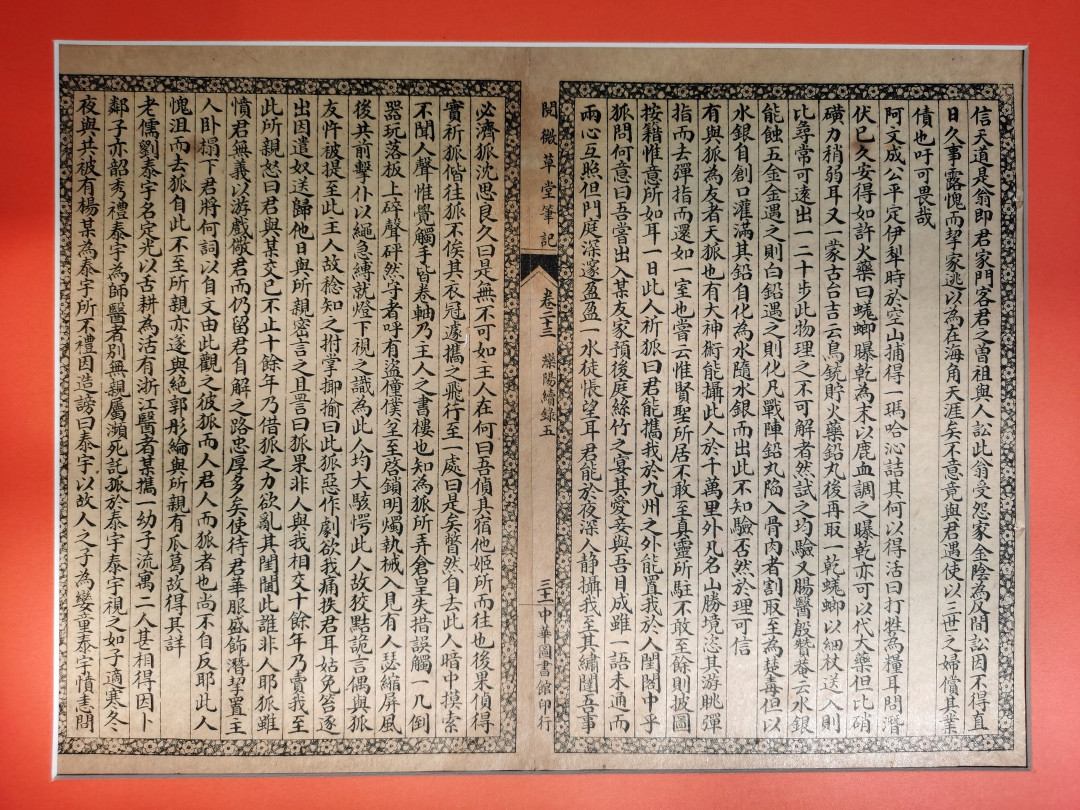 信天道是翁即君家門客君之曾祖與人訟此翁受怨家金陰為反間訟因不得直
日久事露愧而挈家逃以為在海角天涯矣不意竟與君遇使以三世之婦償其業
債也吁可畏哉
阿文成公平定伊犁時於空山捕得一瑪哈沁詰其何以得活曰打牲為糧耳問潛
伏已久安得如許火藥曰蜣蜋曝乾為末以鹿血調之曝乾亦可以代火藥但比硝
磺力稍弱耳又一蒙古台吉云鳥銃貯火藥鉛丸後再取一乾蜣蜋以細杖送入則
比尋常可遠出一二十步此物理之不可解者然試之均驗又腸醫殷贊菴云水銀
能蝕五金金遇之則白鉛遇之則化凡戰陣鉛丸陷入骨肉者割取至為楚毒但以
水銀自創口灌滿其鉛自化為水隨水銀而出此不知驗否然於理可信
有與狐為友者天狐也有大神術能攝此人於千萬里外凡名山勝境恣其游眺彈
指而去彈指而還如一室也嘗云惟賢聖所居不敢至真靈所駐不敢至餘則披圖
按籍惟意所如耳一日此人祈狐曰君能攜我於九州之外能置我於人閨閣中乎
狐問何意曰吾嘗出入某友家預後庭絲竹之宴其愛妾與吾目成雖一語未通而
兩心互照但門庭深邃盈盈一水徒悵望耳君能於夜深人靜攝我至其繡闥吾事
閱微草堂筆記
卷二十三
灤陽續錄五
三十二
中華圖書館印行
必濟狐沈思良久曰是無不可如主人在何曰吾偵其宿他姬所而往也後果偵得
實祈狐偕往狐不俟其衣冠遽攜之飛行至一處曰是矣瞥然自去此人暗中摸索
不聞人聲惟覺觸手皆卷軸乃主人之書樓也知為狐所弄倉皇失措誤觸一几倒
器玩落板上碎聲砰然守者呼有盜僮僕坌至啓鎖明燭執械入見有人瑟縮屏風
後共前擊仆以繩急縛就燈下視之識為此人均大駭愕此人故狡黠詭言偶與狐
友忤被提至此主人故稔知之拊掌揶揄曰此狐惡作劇欲我痛抶君耳姑免笞逐
出因遣奴送歸他日與所親密言之且詈曰狐果非人與我相交十餘年乃賣我至
此所親怒曰君與某交已不止十餘年乃借狐之力欲亂其閨閫此誰非人耶狐雖
憤君無義以游戲儆君而仍留君自解之路忠厚多矣使待君華服盛飾潛挈置主
人卧榻下君將何詞以自文由此觀之彼狐而人君人而狐者也尚不自反耶此人
愧沮而去狐自此不至所親亦遂與絕郭彤綸與所親有瓜葛故得其詳
老儒劉泰宇名定光以舌耕為活有浙江醫者某攜一幼子流寓二人甚相得因卜
鄰子亦韶秀禮泰宇為師醫者別無親屬瀕死託孤於泰宇泰宇視之如子適寒冬
夜與共被有楊某為泰宇所不禮因造謗曰泰宇以故人之子為孌童泰宇憤恚問